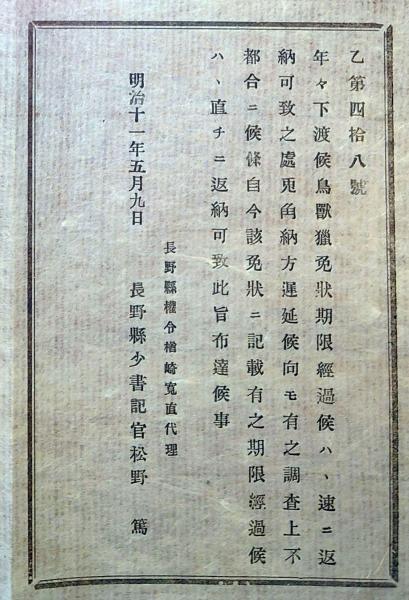 乙第四拾八號
年々下渡候鳥獸獵免狀期限經過候ハヽ速ニ返
納可致之處兎角納方遲延候向モ有之調査上不
都合ニ候條自今該免狀ニ記載有之期限經過候
ハヽ直チニ返納可致此旨布達候事
長野縣權令楢崎寬直代理
明治十一年五月九日 長野縣少書記官松野 篤